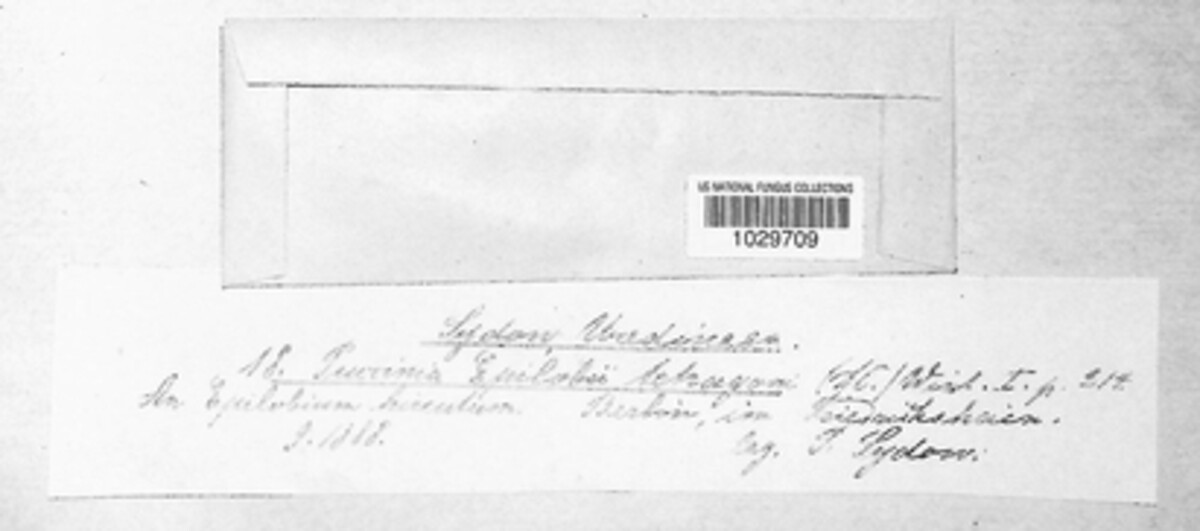 US NATIONAL FUNGUS COLLECTIONS
1029709
Sydow, Uredineen.
18. Puccinia Epilobii tetragoni (DC.) Wint. I. p. 214.
An Epilobium hirsutum. Berlin, im Friedrichshain.
9.1888. leg. P. Sydow.